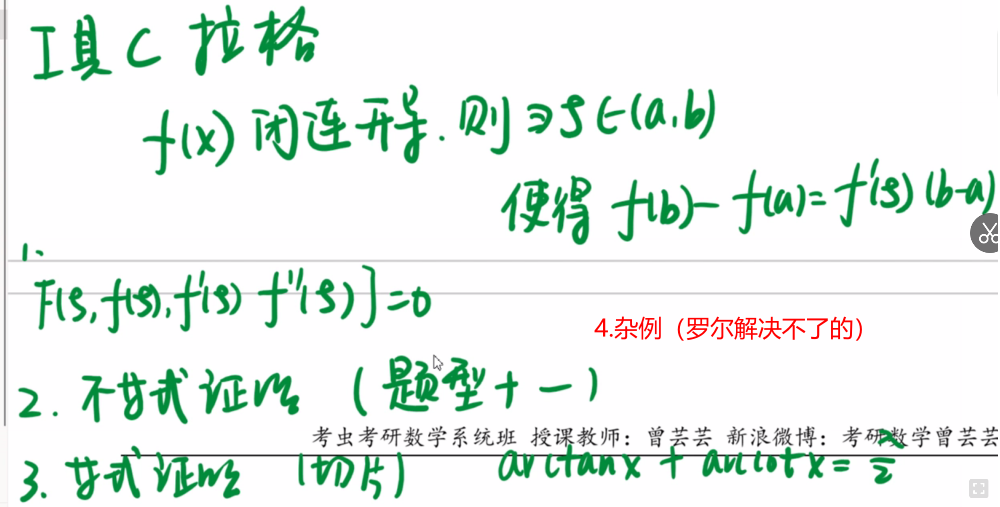 工具C 拉格
f(x) 闭连开导. 则∃ξ∈(a,b)
使得 f(b)-f(a)=f'(ξ)(b-a)
1.
F(ξ,f(ξ),f'(ξ) f''(ξ)]=0
4.杂例（罗尔解决不了的）
2. 不等式证明 (题型十一)
考虫考研数学系统班 授课教师：曾芸芸 新浪微博：考研数学曾芸芸
3. 等式证明 (切片) arctanx + arccotx = π/2